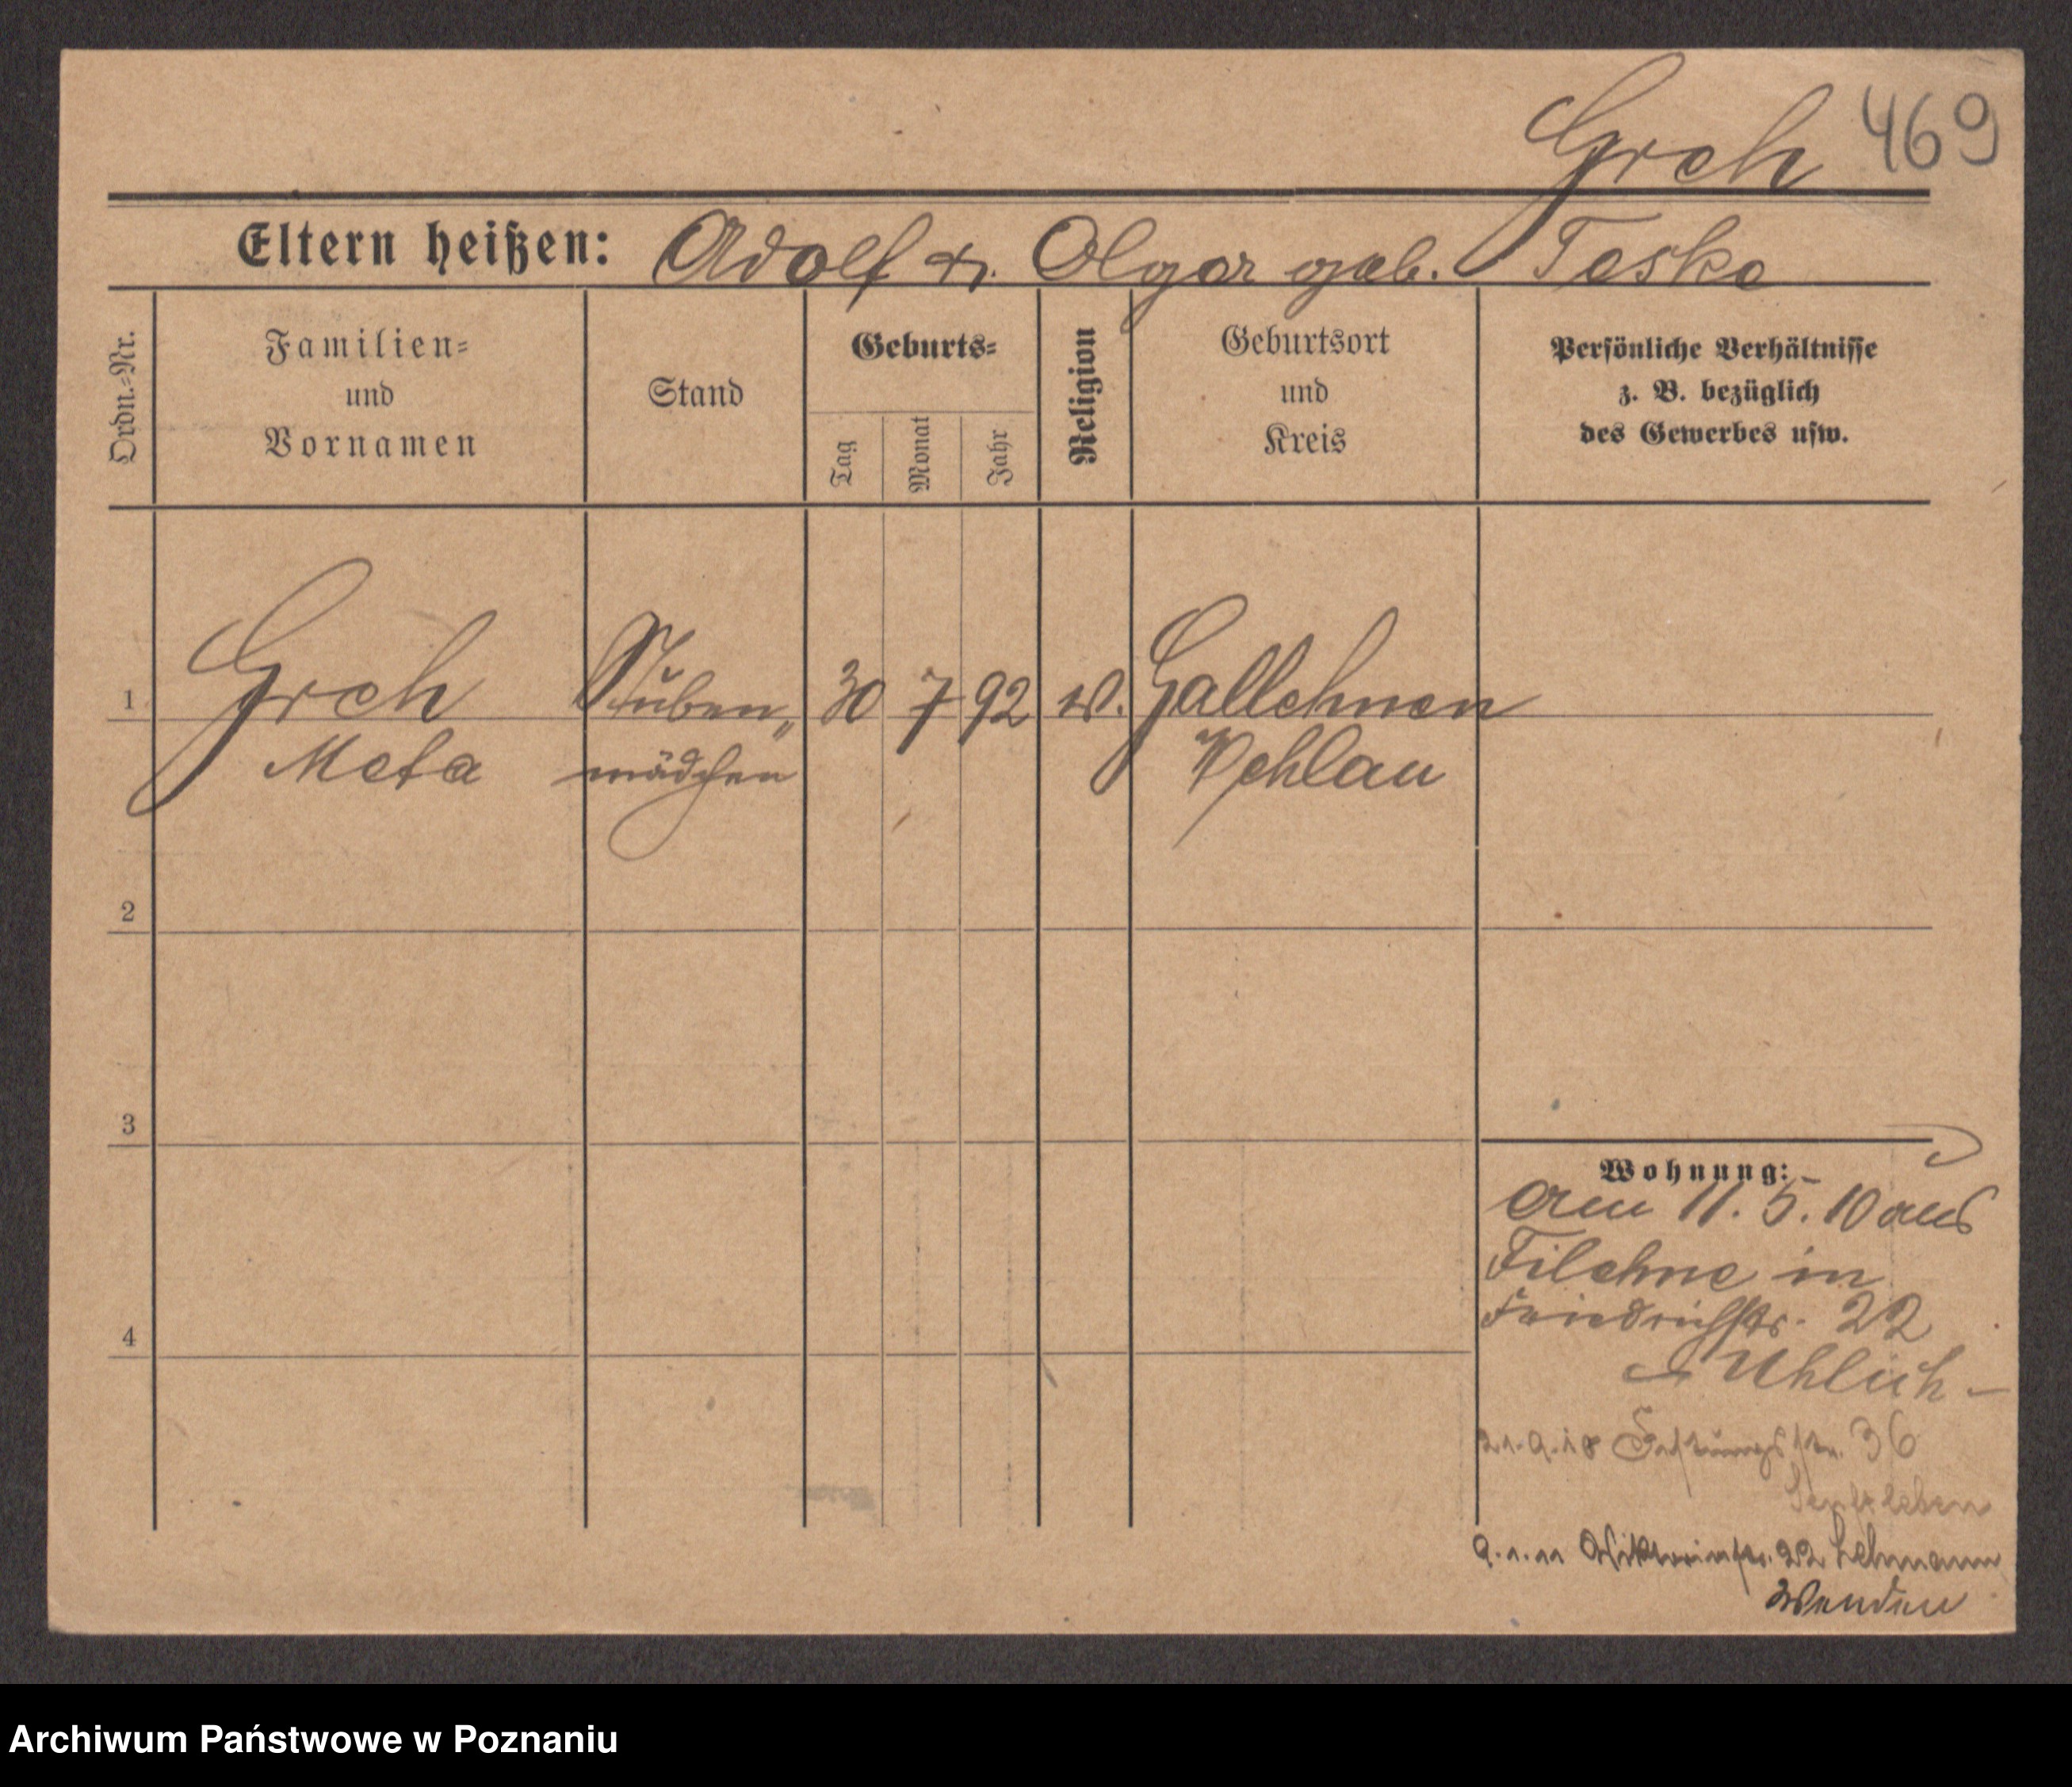 Grch 469
Eltern heißen: Adolf u. Olga geb. Teske
Ordn.-Nr.
Familien-
und
Vornamen
Stand
Geburts-
Tag
Monat
Jahr
Religion
Geburtsort
und
Kreis
Persönliche Verhältnisse
z. B. bezüglich
des Gewerbes usw.
1 Grch Stuben„ 30 7 92 ev. Gallehnen
Meta mädchen Wehlau
2
3
4
Wohnung:
am 11. 5. 10 aus
Filehne in
Friedrichstr. 22
Uhlich
21.9.10 Festungsstr. 36
9.1.11 Viktoriastr. 22 Lehmann
Archiwum Państwowe w Poznaniu